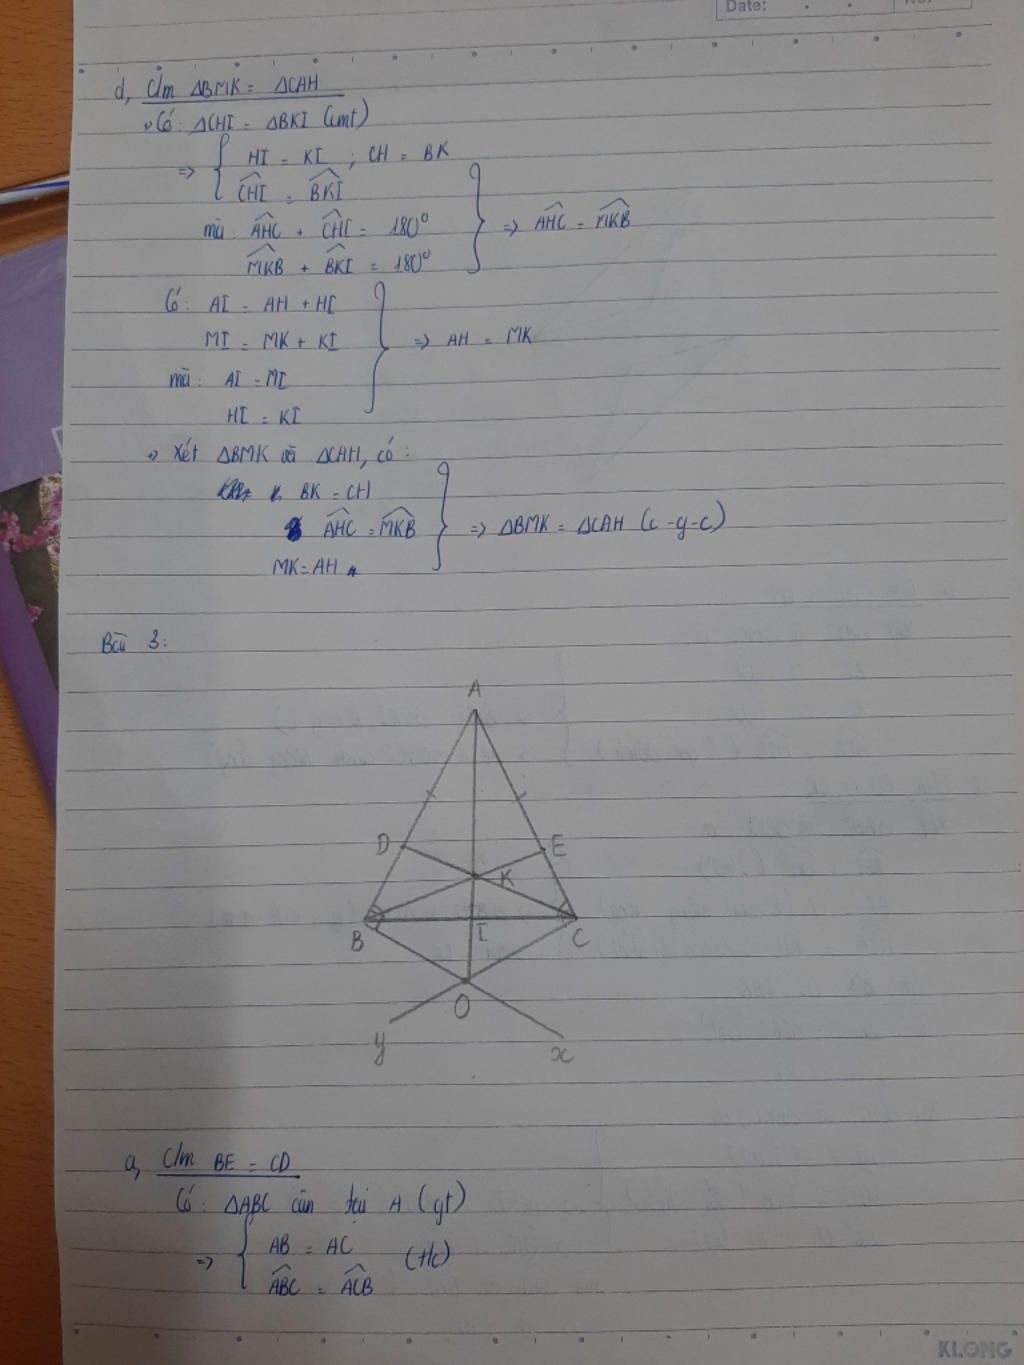 Date:
No:
d, C/m ΔBMK = ΔCAH
Có: ΔCHI = ΔBKI (cmt)
=> { HI = KI ; CH = BK
CHI = BKI
mà: AHC + CHI = 180°
MKB + BKI = 180°
} => AHC = MKB
Có: AI = AH + HI
MI = MK + KI
} => AH = MK
mà: AI = MI
HI = KI
Xét ΔBMK và ΔCAH, có:
BK = CH
AHC = MKB
} => ΔBMK = ΔCAH (c-g-c)
MK = AH
Bài 3:
A
D
E
K
B
I
C
O
y
x
a, C/m BE = CD
Có: ΔABC cân tại A (gt)
=> { AB = AC
(t/c)
ABC = ACB
KLONG